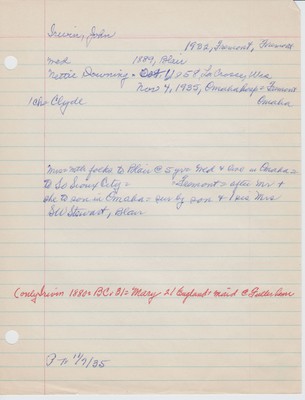 Irwin, John
1932, Fremont, Fremont
wed 1889, Blair
Nettie Downing = Oct 1859 LaCrosse, Wis
Nov 7, 1935, Omaha hosp = Fremont
Omaha
1ch = Clyde
folks to Blair @ 5 yr = Wed & live in Omaha =
to So Sioux City = Fremont = after mr +
she to son in Omaha = surv by son & 1 sis Mrs
SW Stewart, Blair
(only Irwin 1880 = BC, 31 = Mary 21 England = maid @
F Tr 11/7/35